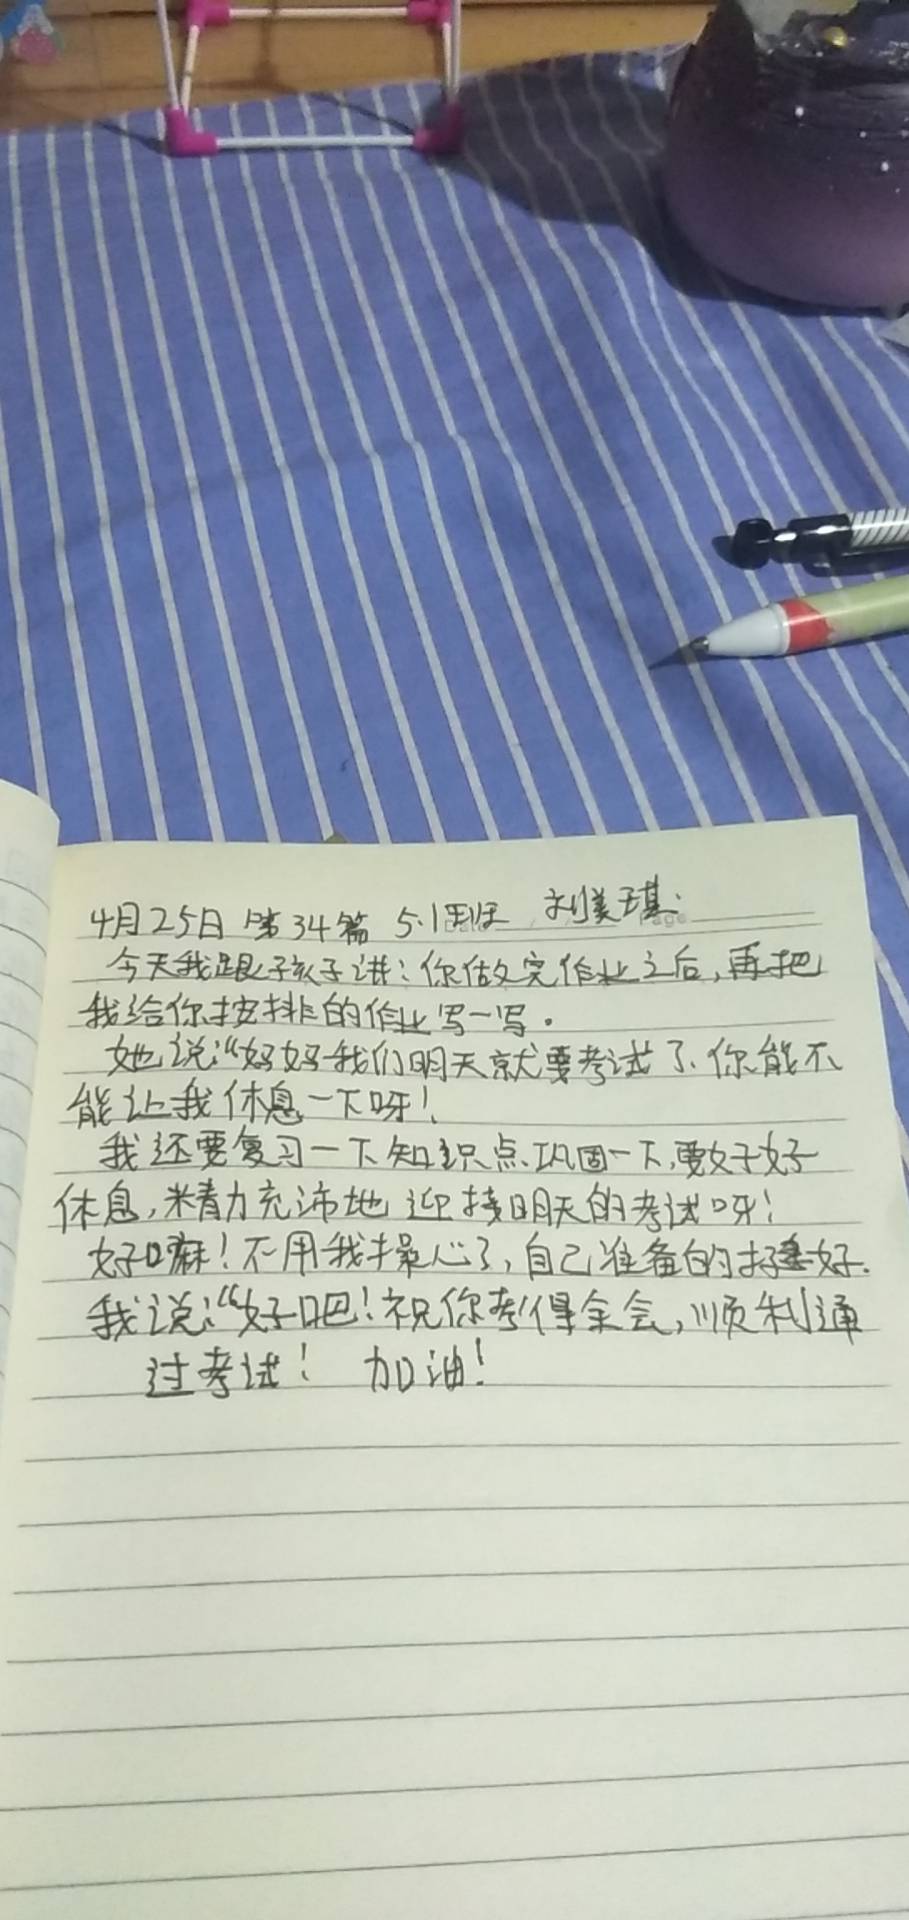 4月25日 第34篇 5.1班 刘美琪
今天我跟孩子讲:你做完作业之后,再把
我给你按排的作业写一写。
她说:“好好我们明天就要考试了、你能不
能让我休息一下呀!
我还要复习一下知识点、巩固一下,要好好
休息,精力充沛地迎接明天的考试呀!
好嘛!不用我操心了,自己准备的好好.
我说:“好吧!祝你考得余会,顺利通
过考试! 加油!